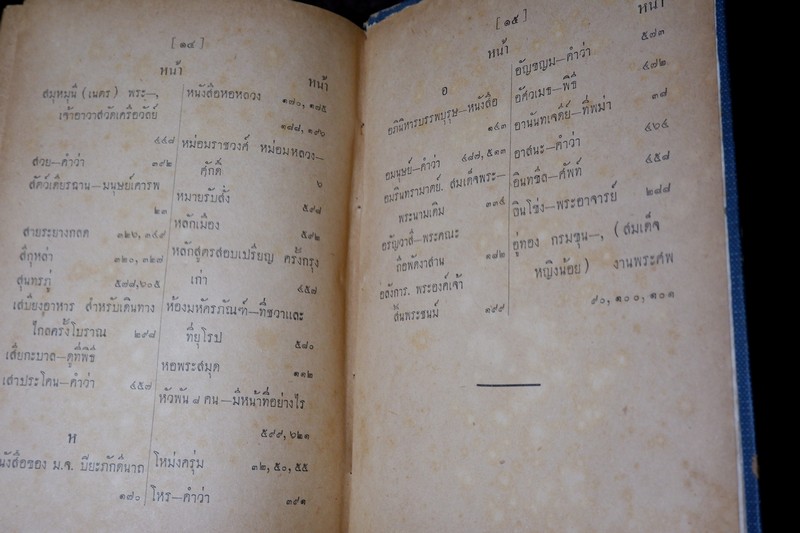 [ ๑๔ ]
หน้า
สมุหมุนี (เนตร) พระ—,
เจ้าอาวาสวัดเครือวัลย์
๔๔๘
สวย—คำว่า ๓๙๒
สัตว์เดียรฉาน—มนุษย์เคารพ
๒๓
สายระยางกลด ๓๒๖, ๓๔๙
สีกุหล่า ๓๒๐, ๓๒๘
สุนทรภู่ ๕๘๘,๖๐๕
เสบียงอาหาร สำหรับเดินทาง
ไกลครั้งโบราณ ๒๙๘
เสี้ยกะบาล—ดูที่พิธี
เสาประโคน—คำว่า ๔๕๘
ห
หนังสือของ ม.จ. ปิยะภักดีนาถ
๑๘๐
หน้า
หนังสือหอหลวง ๑๘๐, ๑๘๕
๑๘๘, ๑๙๖
หม่อมราชวงศ์ หม่อมหลวง—
ศักดิ์ ๖
หมายรับสั่ง ๕๙๘
หลักเมือง ๕๙๒
หลักสูตรสอบเปรียญ ครั้งกรุง
เก่า ๔๕๘
ห้องมหัครภัณฑ์—ที่ชวาและ
ที่ยุโรป ๕๘๐
หอพระสมุด ๑๑๒
หัวพัน ๘ คน—มีหน้าที่อย่างไร
๕๙๙, ๖๒๑
โหม่งครุ่ม ๓๒, ๕๐, ๕๕
โหร—คำว่า ๓๙๑
[ ๑๕ ]
หน้า
อ
อภินิหารบรรพบุรุษ—หนังสือ
๑๙๓
อมนุษย์—คำว่า ๔๘๘, ๕๑๓
อมรินทรามาตย์. สมเด็จพระ—
พระนามเดิม ๓๓๔
อรัญวาสี—พระคณะ
ถือพัดงาสาน ๑๘๒
อลังการ. พระองค์เจ้า
สิ้นพระชนม์ ๑๙๙
หน้า
อัญขญม—คำว่า ๕๘๓
อัศวเมธ—พิธี ๔๘๒
อานันทเจดีย์—ที่พม่า ๓๘
อาสนะ—คำว่า ๔๖๔
อินทขีล—ศัพท์ ๔๕๘
อินโข่ง—พระอาจารย์ ๒๘๘
อู่ทอง กรมขุน—, (สมเด็จ
หญิงน้อย) งานพระศพ
๙๐, ๑๐๐, ๑๐๑